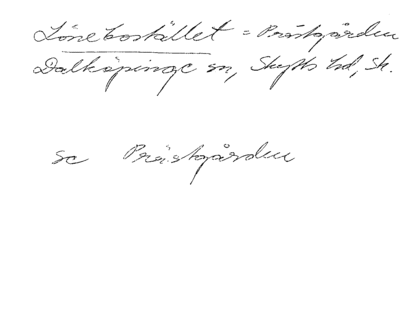 Lönebostället = Prästgården
Dalköpinge sn, Skytts hd, Sk.
se Prästgården